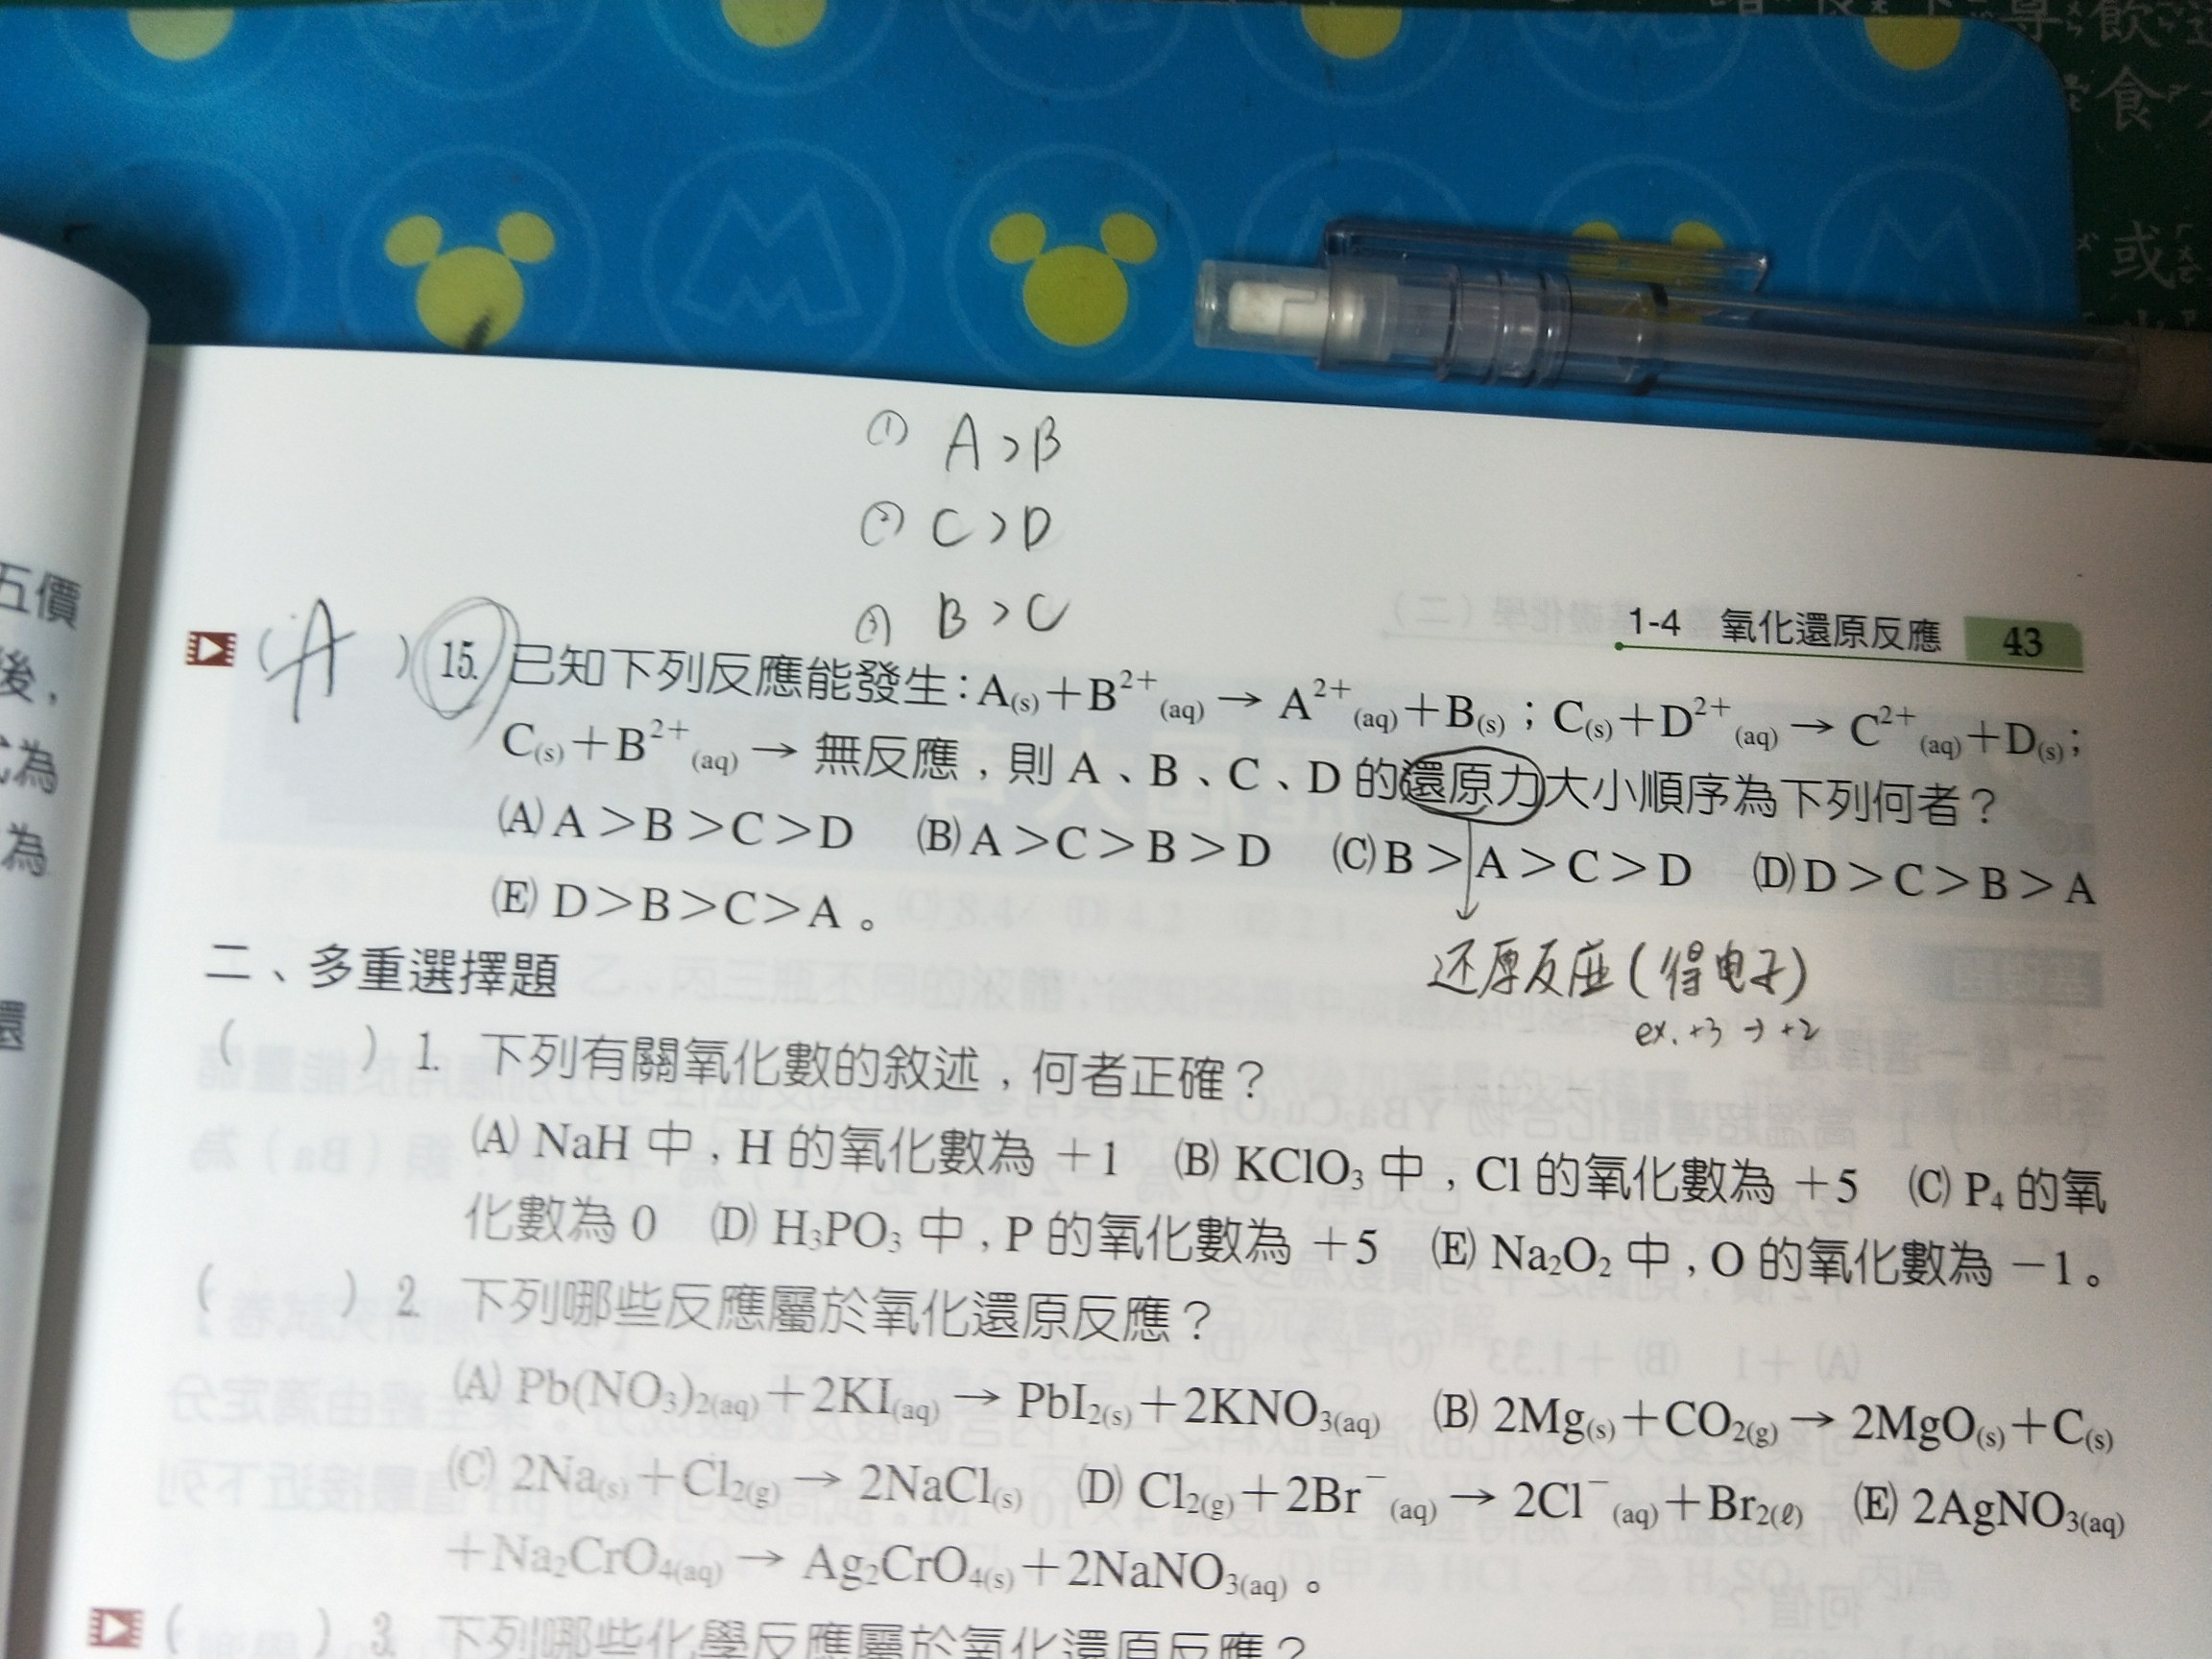 飲
食
或
① A>B
② C>D
③ B>C
1-4 氧化還原反應 43
五價
後，
為
為
還
(A) 15. 已知下列反應能發生：A(s)+B²⁺(aq) → A²⁺(aq)+B(s)；C(s)+D²⁺(aq) → C²⁺(aq)+D(s)；
C(s)+B²⁺(aq) → 無反應，則 A、B、C、D 的還原力大小順序為下列何者？
(A) A>B>C>D (B) A>C>B>D (C) B>A>C>D (D) D>C>B>A
(E) D>B>C>A。
还原反应(得电子)
ex. +3 → +2
二、多重選擇題
( ) 1. 下列有關氧化數的敘述，何者正確？
(A) NaH 中，H 的氧化數為 +1 (B) KClO₃ 中，Cl 的氧化數為 +5 (C) P₄ 的氧
化數為 0 (D) H₃PO₃ 中，P 的氧化數為 +5 (E) Na₂O₂ 中，O 的氧化數為 −1。
( ) 2. 下列哪些反應屬於氧化還原反應？
(A) Pb(NO₃)₂(aq)+2KI(aq) → PbI₂(s)+2KNO₃(aq) (B) 2Mg(s)+CO₂(g) → 2MgO(s)+C(s)
(C) 2Na(s)+Cl₂(g) → 2NaCl(s) (D) Cl₂(g)+2Br⁻(aq) → 2Cl⁻(aq)+Br₂(ℓ) (E) 2AgNO₃(aq)
+Na₂CrO₄(aq) → Ag₂CrO₄(s)+2NaNO₃(aq)。
( ) 3. 下列哪些化學反應屬於氧化還原反應？